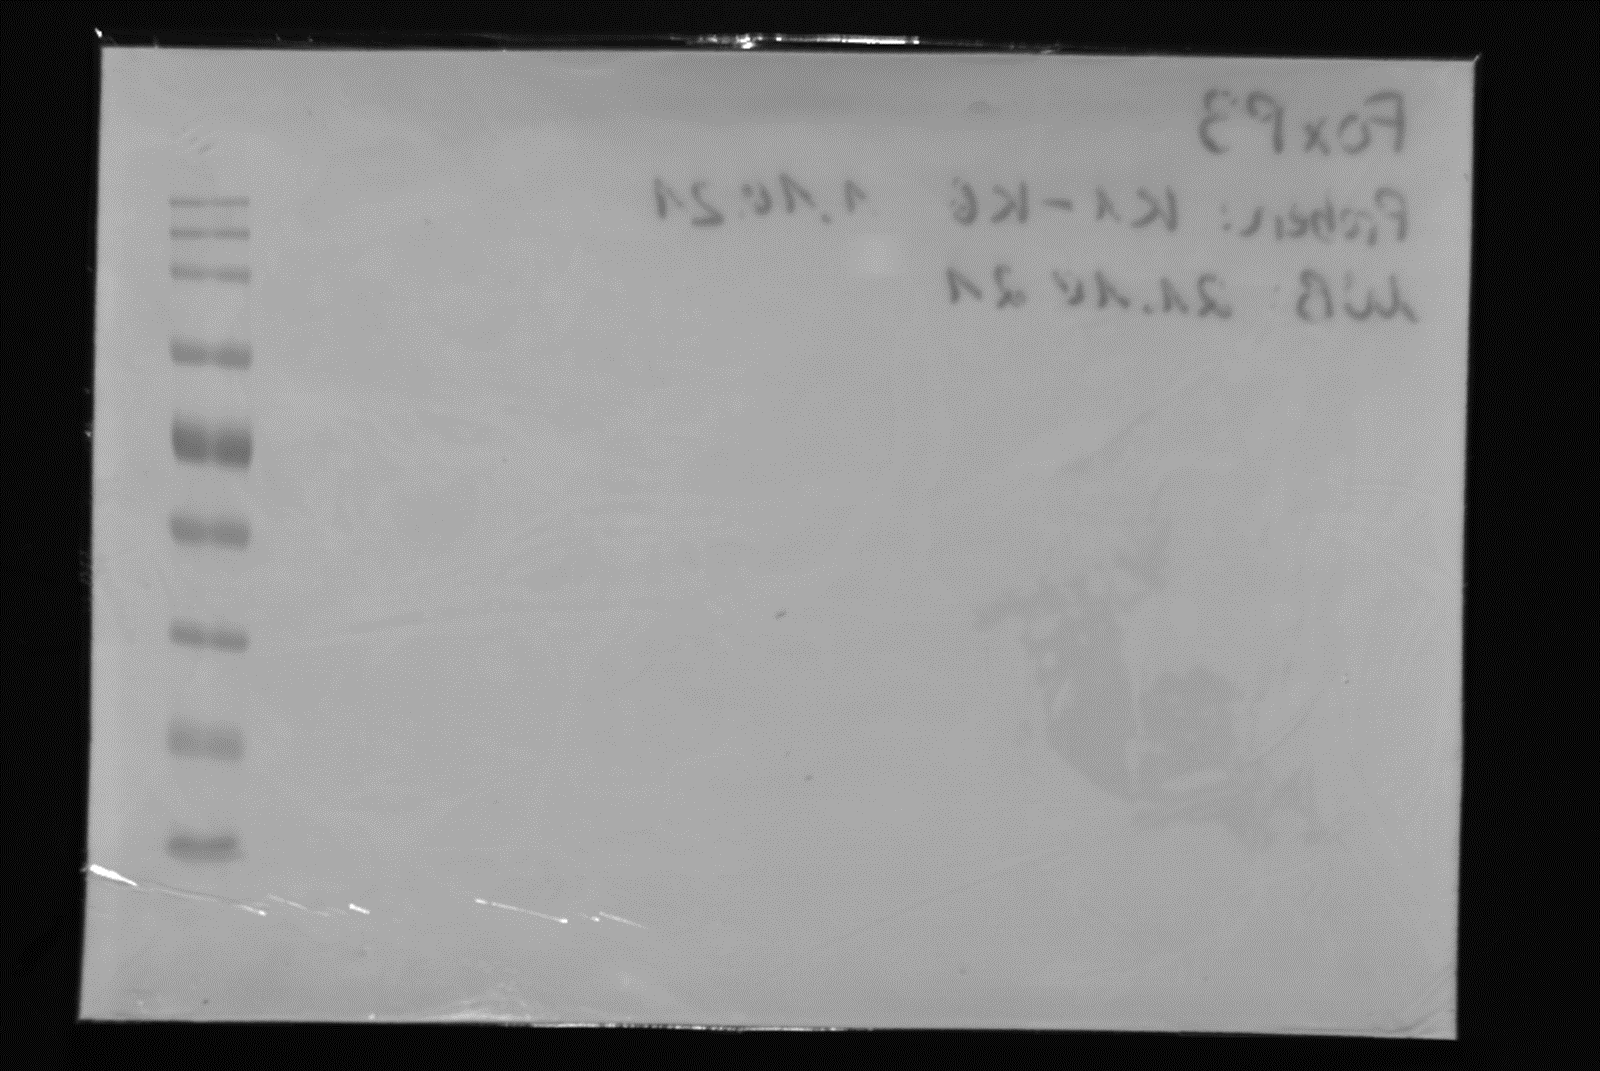 FoxP3
Proben: K1-K6 1.10.21
WB 21.10.21